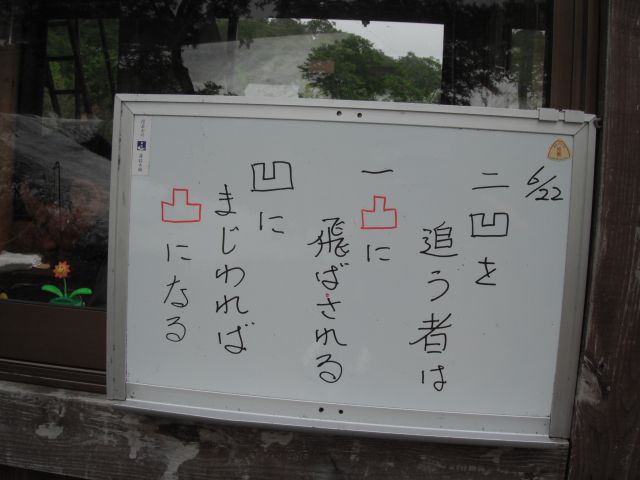 6/22
二凹を
追う者は
一凸に
飛ばされる
凹に
まじわれば
凸になる